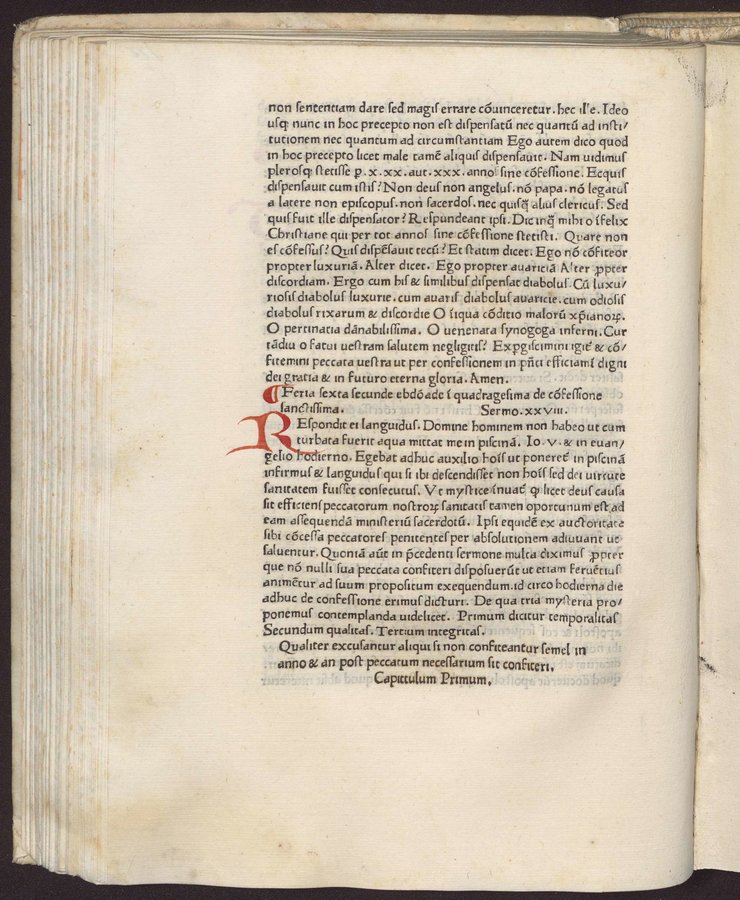 non sententiam dare sed magis errare cōuinceretur. hec il'e. Ideo
usq; nunc in hoc precepto non est dispensatū nec quantū ad insti/
tutionem nec quantum ad circumstantiam Ego autem dico quod
in hoc precepto licet male tamē aliquis dispensauit. Nam uidimus
plerosq; stetisse p. x. xx. aut. xxx. annos sine cōfessione. Ecquis
dispensauit cum istis? Non deus non angelus. nō papa. nō legatus
a latere non episcopus. non sacerdos. nec quisq̄ alius clericus. Sed
quis fuit ille dispensator? Respundeant ipsi. Dic inq̄ mihi o īfelix
Christiane qui per tot annos sine cōfessione stetisti. Quare non
es cōfessus? Quis dispēsauit tecū? Et statim dicet. Ego nō cōfiteor
propter luxuriā. Alter dicet. Ego propter auariciā Alter ꝓpter
discordiam. Ergo cum his & similibus dispensat diabolus. Cū luxu/
riosis diabolus luxurie. cum auaris diabolus auaricie. cum odiosis
diabolus rixarum & discordie O īiqua cōditio malorū xp̄ianoꝝ.
O pertinatia dānabilissima. O uenenata synogoga inferni. Cur
tādiu o fatui uestram salutem negligitis? Expgiscimini igit̄ & cō/
fitemini peccata uestra ut per confessionem in pn̄ti efficiami digni
dei gratia & in futuro eterna gloria. Amen.
¶ Feria sexta secunde ebdōade ī quadragesima de cōfessione
sanctissima. Sermo. xxviii.
REspondit ei languidus. Domine hominem non habeo ut cum
turbata fuerit aqua mittat me in piscinā. Io. v. & in euan/
gelio hodierno. Egebat adhuc auxilio hoīs ut poneret̄ in piscinā
infirmus & languidus qui si ibi descendisset non hoīs sed dei uirtute
sanitatem fuisset consecutus. Vt mystice īnuat̄ q̄ licet deus causa
sit efficiens peccatorum nostroꝝ sanitatis tamen oportunum est ad
eam assequendā ministeriū sacerdotū. Ipsi equidē ex auctoritate
sibi cōcessa peccatores penitentes per absolutionem adiuuant ut
saluentur. Quoniā aūt in p̄cedenti sermone multa diximus ꝓpter
que nō nulli sua peccata confiteri disposuerūt ut etiam feruētius
animētur ad suum propositum exequendum. id circo hodierna die
adhuc de confessione erimus dicturi. De qua tria mysteria pro/
ponemus contemplanda uidelicet. Primum dicitur temporalitas
Secundum qualitas. Tertium integritas.
Qualiter excusantur aliqui si non confiteantur semel in
anno & an post peccatum necessarium sit confiteri.
Capitulum Primum.